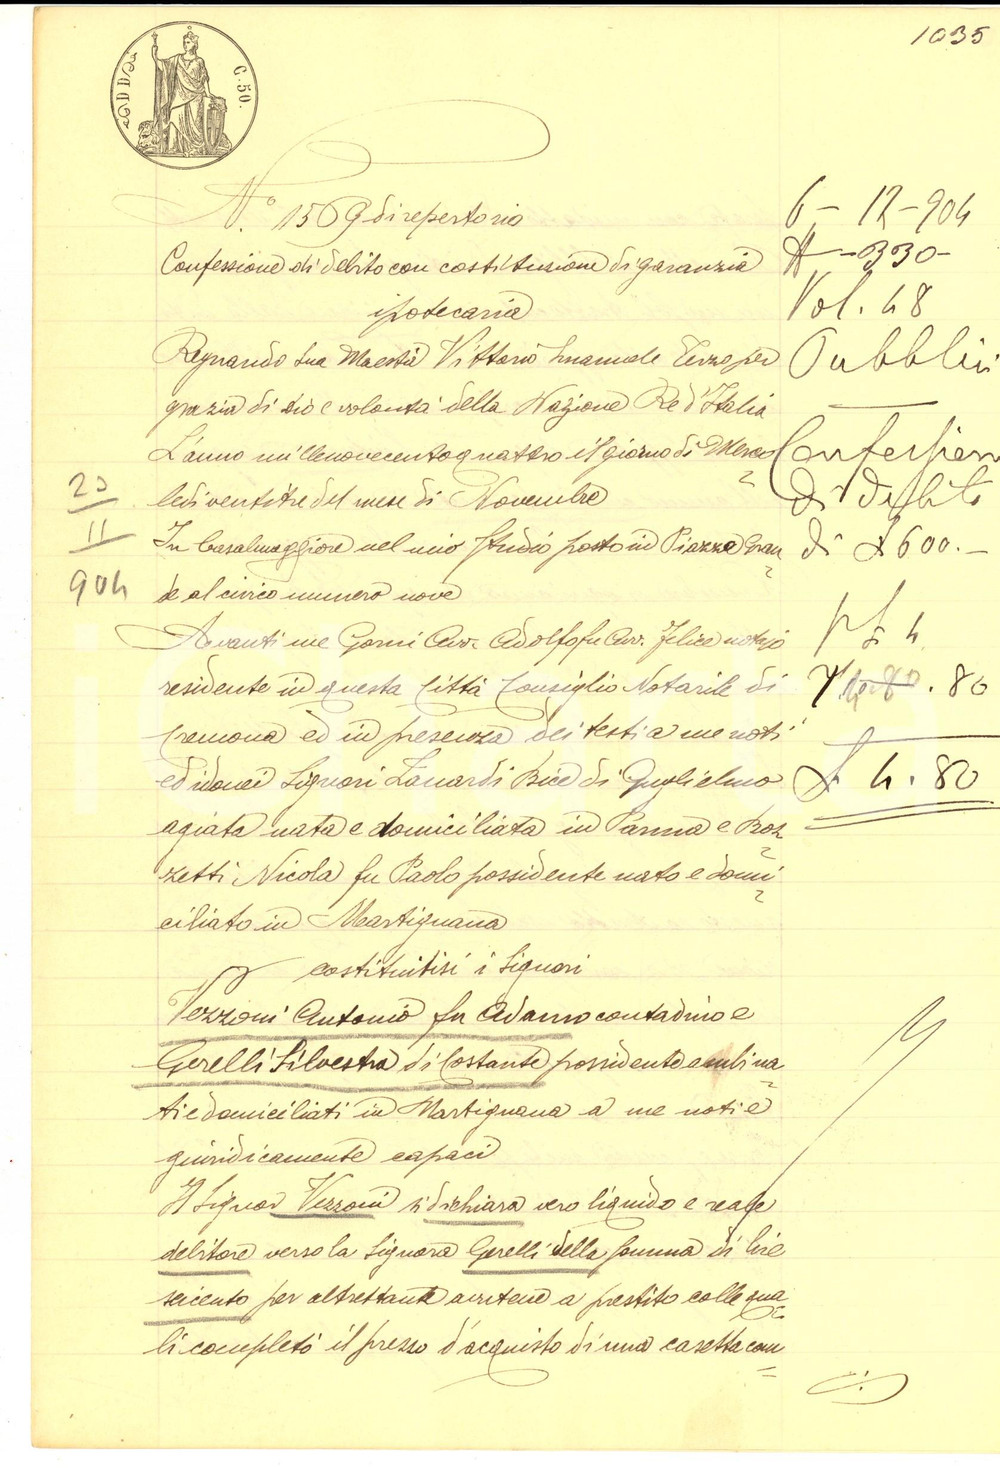 1035
C. 50.
N.° 1569 di repertorio
Confessione di debito con costituzione di garanzia
ipotecaria
Regnando Sua Maestà Vittorio Emanuele Terzo per
grazia di Dio e volontà della Nazione Re d'Italia
L'anno millenovecentoquattro il giorno di Merco
ledì ventitre del mese di Novembre
In Casalmaggiore nel mio studio posto in Piazza Gran
de al civico numero nove
Avanti me Gorni Avv. Adolfo fu Avv. Felice notajo
residente in questa Città Consiglio Notarile di
Cremona ed in presenza dei testi a me noti
ed idonei Signori Zanardi Bice di Guglielmo
agiata nata e domiciliata in Parma e Boz
zetti Nicola fu Paolo possidente nato e domi
ciliato in Martignana
costituitisi i Signori
Vezzoni Antonio fu Adamo contadino e
Gerelli Silvestra di Costante possidente ambi na
ti e domiciliati in Martignana a me noti e
giuridicamente capaci
Il Signor Vezzoni si dichiara vero liquido e reale
debitore verso la Signora Gerelli della somma di lire
seicento per altrettante avute a prestito colle qua
li completò il prezzo d'acquisto di una casetta con
23
11
904
6 - 12 - 904
330 -
Vol. 48
Pubblici
Confession
di debito
di £ 600. -
4
. 80
£. 4. 80